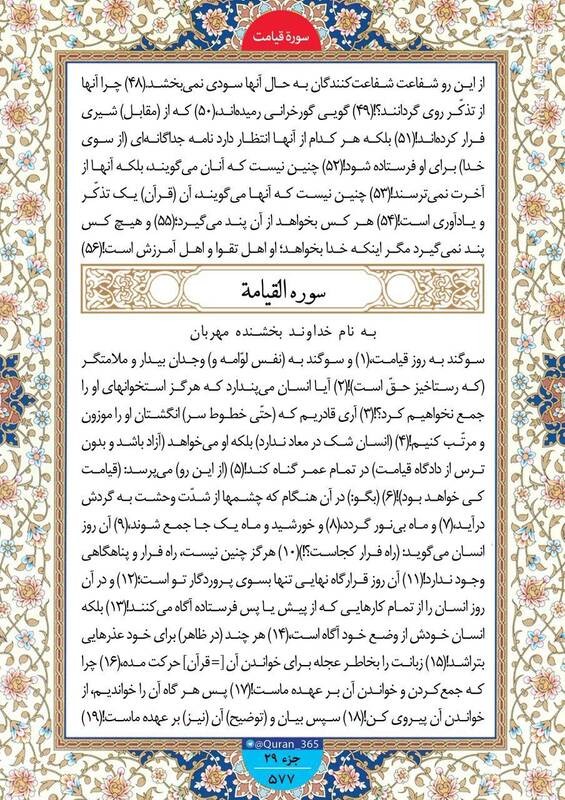 سورة قیامت
از این رو شفاعت شفاعت‌کنندگان به حال آنها سودی نمی‌بخشد.(۴۸) چرا آنها
از تذکّر روی گردانند؟!(۴۹) گویی گورخرانی رمیده‌اند،(۵۰) که از (مقابل) شیری
فرار کرده‌اند!(۵۱) بلکه هر کدام از آنها انتظار دارد نامه جداگانه‌ای (از سوی
خدا) برای او فرستاده شود!(۵۲) چنین نیست که آنان می‌گویند، بلکه آنها از
آخرت نمی‌ترسند!(۵۳) چنین نیست که آنها می‌گویند، آن (قرآن) یک تذکّر
و یادآوری است!(۵۴) هر کس بخواهد از آن پند می‌گیرد؛(۵۵) و هیچ کس
پند نمی‌گیرد مگر اینکه خدا بخواهد؛ او اهل تقوا و اهل آمرزش است!(۵۶)
سوره القیامة
به نام خداوند بخشنده مهربان
سوگند به روز قیامت،(۱) و سوگند به (نفس لوّامه و) وجدان بیدار و ملامتگر
(که رستاخیز حقّ است)!(۲) آیا انسان می‌پندارد که هرگز استخوانهای او را
جمع نخواهیم کرد؟!(۳) آری قادریم که (حتّی خطوط سر) انگشتان او را موزون
و مرتّب کنیم!(۴) (انسان شک در معاد ندارد) بلکه او می‌خواهد (آزاد باشد و بدون
ترس از دادگاه قیامت) در تمام عمر گناه کند!(۵) (از این رو) می‌پرسد: (قیامت
کی خواهد بود)!(۶) (بگو:) در آن هنگام که چشمها از شدّت وحشت به گردش
درآید،(۷) و ماه بی‌نور گردد،(۸) و خورشید و ماه یک جا جمع شوند،(۹) آن روز
انسان می‌گوید: (راه فرار کجاست؟!)(۱۰) هرگز چنین نیست، راه فرار و پناهگاهی
وجود ندارد!(۱۱) آن روز قرارگاه نهایی تنها بسوی پروردگار تو است؛(۱۲) و در آن
روز انسان را از تمام کارهایی که از پیش یا پس فرستاده آگاه می‌کنند!(۱۳) بلکه
انسان خودش از وضع خود آگاه است،(۱۴) هر چند (در ظاهر) برای خود عذرهایی
بتراشد!(۱۵) زبانت را بخاطر عجله برای خواندن آن [=قرآن] حرکت مده،(۱۶) چرا
که جمع‌کردن و خواندن آن بر عهده ماست!(۱۷) پس هر گاه آن را خواندیم، از
خواندن آن پیروی کن!(۱۸) سپس بیان و (توضیح) آن (نیز) بر عهده ماست!(۱۹)
@Quran_365
جزء ۲۹
۵۷۷